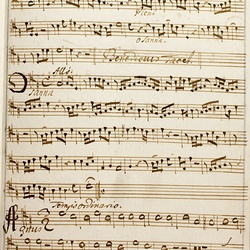 Pleni
Osanna.
Benedictus Tacet.
All:o
Osanna
Tempo ordinario.
Agnus